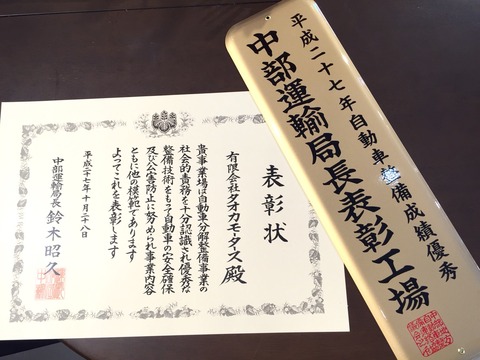 表彰状
有限会社タオカモータース殿
貴事業場は自動車分解整備事業の
社会的責務を十分認識され優秀な
整備技術をもって自動車の安全確保
及び公害防止に努められ事業内容
ともに他の模範であります
よってこれを表彰します
平成二十七年十月二十八日
中部運輸局長 鈴木昭久
平成二十七年自動車整備成績優秀
中部運輸局長表彰工場